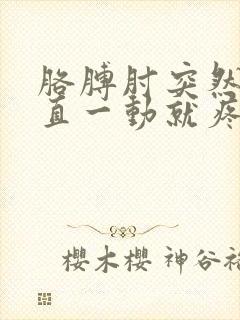 胳膊肘突然
直一動就疼
櫻木櫻 神谷裕